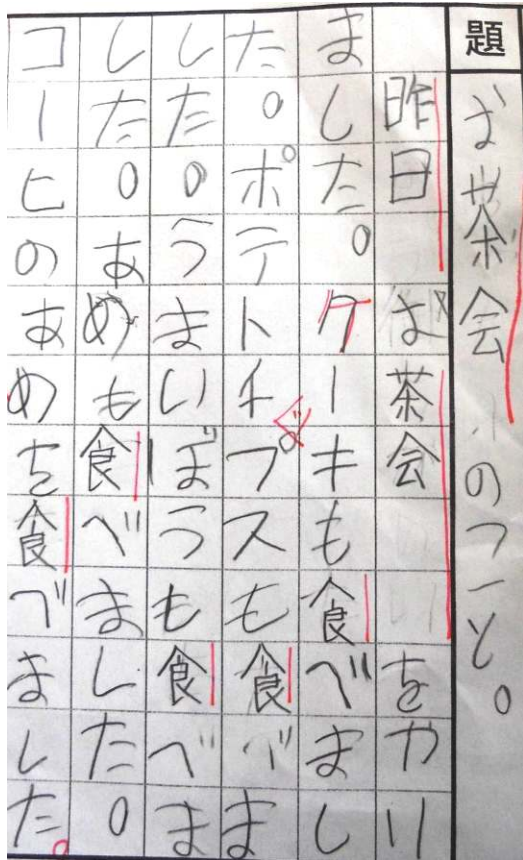 題
お茶会のこと。
昨日お茶会をやり
ました。ケーキも食べまし
た。ポテトチプスも食べま
した。うまいぼうも食べま
した。あめも食べました。
コーヒのあめを食べました。